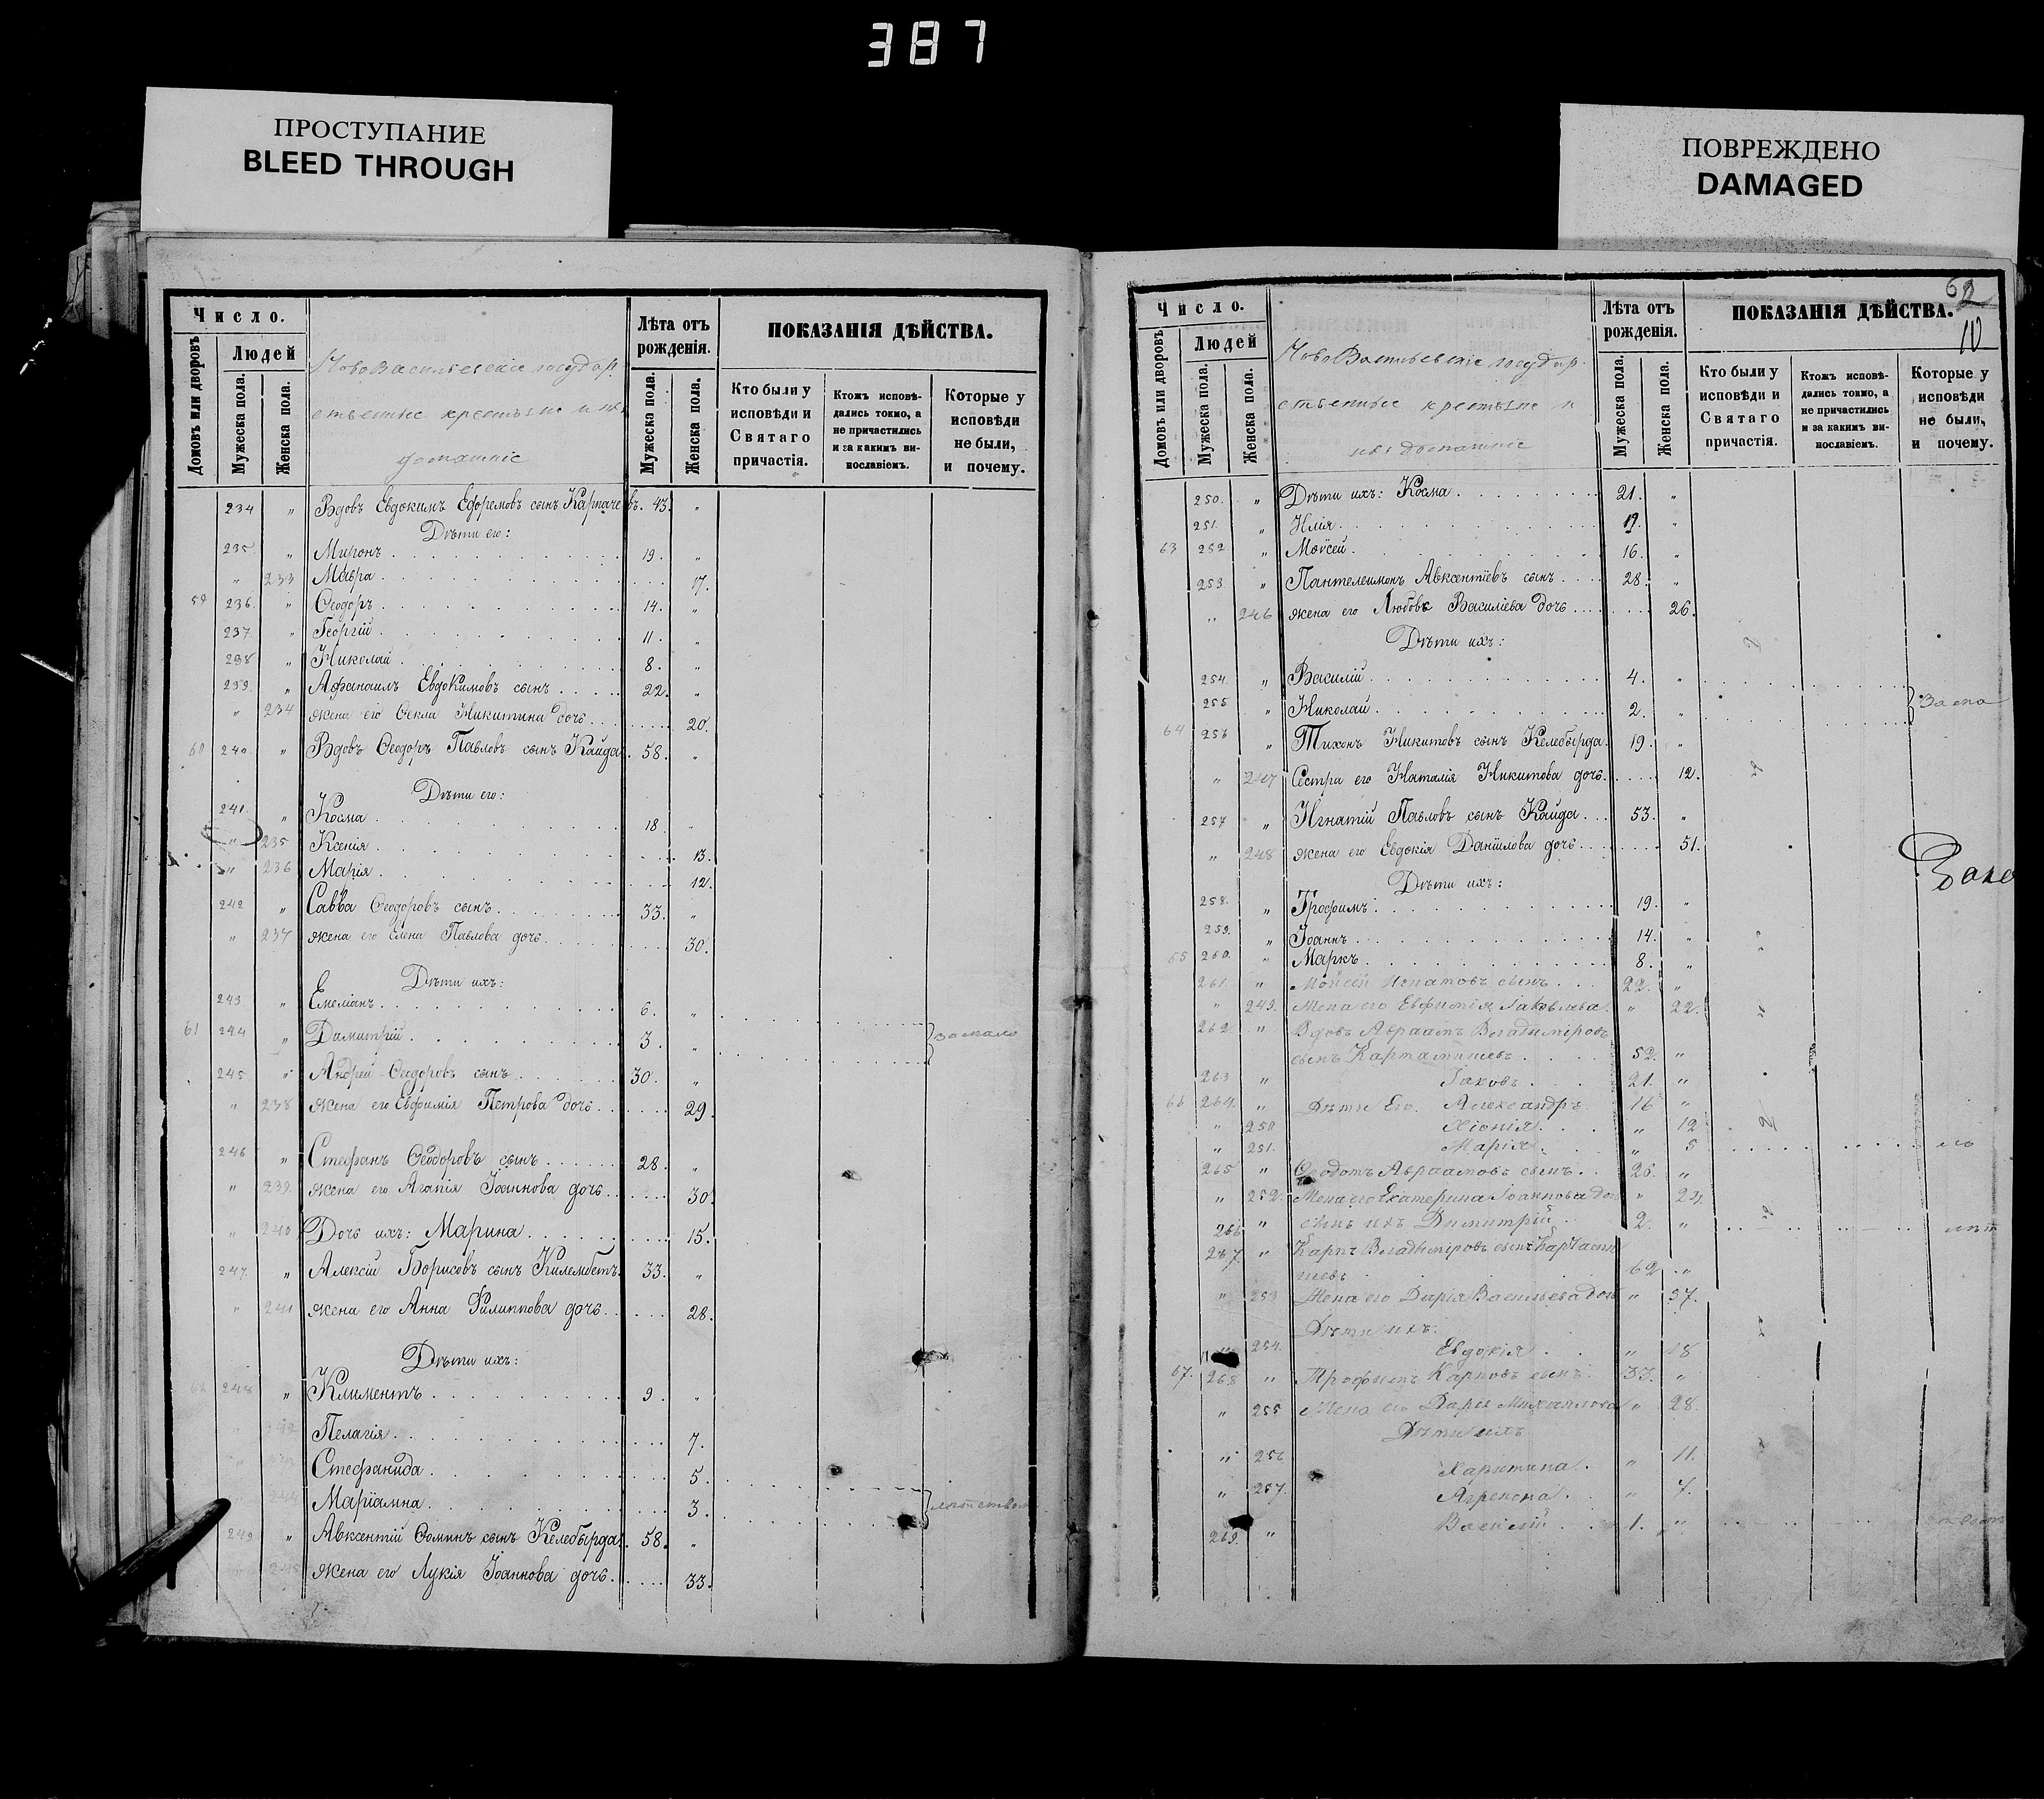 387
ПРОСТУПАНИЕ
BLEED THROUGH
ПОВРЕЖДЕНО
DAMAGED
Число.
Людей
Домовъ или дворовъ
Мужеска пола.
Женска пола.
НовоВасильевскіе государ
ственные крестьяне и ихъ
домашніе
Лѣта отъ рожденія.
Мужеска пола.
Женска пола.
ПОКАЗАНІЯ ДѢЙСТВА.
Кто были у исповѣди и Святаго причастія.
Ктожъ исповѣдались токмо, а не причастились и за какимъ винословіемъ.
Которые у исповѣди не были, и почему.
234 " Вдовъ Евдокимъ Ефремовъ сынъ Карпачевъ. 43. "
Дѣти его:
235 " Миронъ 19. "
" 233 Мавра 17.
59 236. " Ѳеодоръ 14. "
237. " Георгій 11. "
238 " Николай 8. "
239. " Афанаилъ Евдокимовъ сынъ 22. "
" 234 жена его Ѳекла Никитина дочь 20.
60 240. " Вдовъ Ѳеодоръ Павловъ сынъ Кайда. 58. "
Дѣти его:
241. " Косма 18. "
" 235 Ксенія 13.
" 236 Марія 12.
242 " Савва Ѳеодоровъ сынъ 33. "
" 237 жена его Елена Павлова дочь 30.
Дѣти ихъ:
243 " Емеліанъ 6. "
61 244 " Димитрій 3. " } за мало
245 " Андрей Ѳеодоровъ сынъ 30. "
" 238 жена его Евфимія Петрова дочь 29.
246 " Стефанъ Ѳеодоровъ сынъ 28. "
" 239. жена его Агапія Іоаннова дочь 30.
" 240 Дочь ихъ: Марина 15.
247. " Алексій Борисовъ сынъ Килембетъ. 33. "
" 241 жена его Анна Филиппова дочь 28.
Дѣти ихъ:
62 248 " Климентъ 9. "
Пелагія 7.
Стефанида 5.
Маріамна 3.
249 " Авксентій Ѳоминъ сынъ Келебырда. 58. "
жена его Лукія Іоаннова дочь. 33.
62
10
Число.
Людей
Домовъ или дворовъ
Мужеска пола.
Женска пола.
НовоВасильевскіе государ
ственные крестьяне и
ихъ домашніе
Лѣта отъ рожденія.
Мужеска пола.
Женска пола.
ПОКАЗАНІЯ ДѢЙСТВА.
Кто были у исповѣди и Святаго причастія.
Ктожъ исповѣдались токмо, а не причастились и за какимъ винославіемъ.
Которые у исповѣди не были, и почему.
250. " Дѣти ихъ: Косма 21. "
251. " Илія 19. "
63 252 " Моѵсей 16. "
253 " Пантелеимонъ Авксентіевъ сынъ 28. "
" 246 жена его Любовь Василіева дочь 26.
Дѣти ихъ:
254. " Василій 4. "
255 " Николай 2. " } За ма
64 256 " Тихонъ Никитовъ сынъ Келебырда. 19. "
" 247 Сестра его Наталія Никитова дочь 12.
257 " Игнатій Павловъ сынъ Кайда 53. "
" 248 жена его Евдокія Даніилова дочь 51.
Дѣти ихъ:
258. " Трофимъ 19. "
259. " Іоаннъ 14. "
65 260. " Маркъ 8. "
261. " Моисей Игнатовъ сынъ 22. "
" 249. Жена его Евфимія Іаковлева " 22.
262. " Вдовъ Авраамъ Владиміровъ
сынъ Картамышевъ 52. "
263 " Іаковъ 21. "
66 264. " Дѣти Его. Александръ 16 "
" 250 Хіонія " 12
" 251. Марія " 5
265 " Ѳеодотъ Авраамовъ сынъ 26. "
" 252. Жена его Екатерина Іоаннова доч " 23.
266 " сынъ ихъ Димитрій 2. "
267 " Карпъ Владиміровъ сынъ Картамы
шевъ 62 "
" 253 Жена его Дарія Васильева дочь " 57.
Дѣти ихъ.
" 254. Евдокія " 18
67. 268 " Трофимъ Карповъ сынъ 33. "
" 255 Жена его Дарія Михаилова " 28.
Дѣти ихъ
" 256 Харитина " 11.
" 257. Агрепена " 7.
269. " Василій 1. "